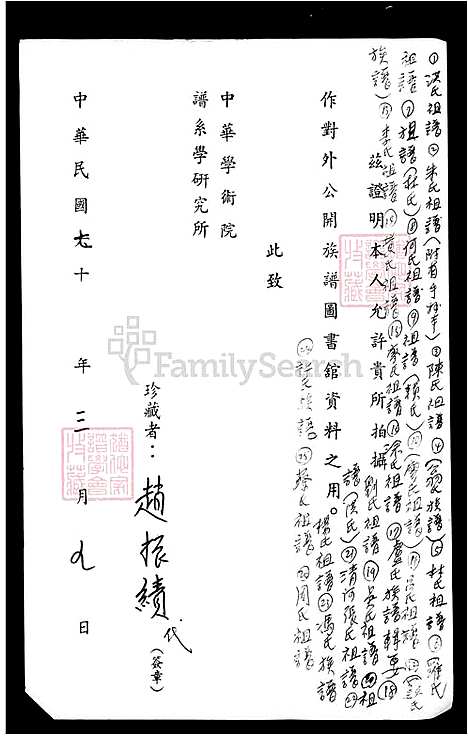 ①洪氏祖譜②朱氏祖譜(附首手抄本)③陳氏祖譜④(翁氏族譜)⑤杜氏祖譜⑥羅氏
祖譜⑦祖譜(林氏)⑧何氏祖譜⑨祖譜(賴氏)
族譜 李氏祖譜 黃氏祖譜 廖氏祖譜 余氏祖譜⑰盧氏族譜輯要⑱
茲證明本人允許貴所拍攝
劉氏祖譜⑲吳氏祖譜⑳祖
譜(洪氏)㉑清河張氏祖譜
作對外公開族譜圖書館資料之用。
楊氏祖譜 馮氏族譜
此致
許氏族譜 蔡氏祖譜 周氏祖譜
中華學術院
譜系學研究所
珍藏者:趙振績代(簽章)
中華民國七十 年 三 月 九 日
FamilySearch